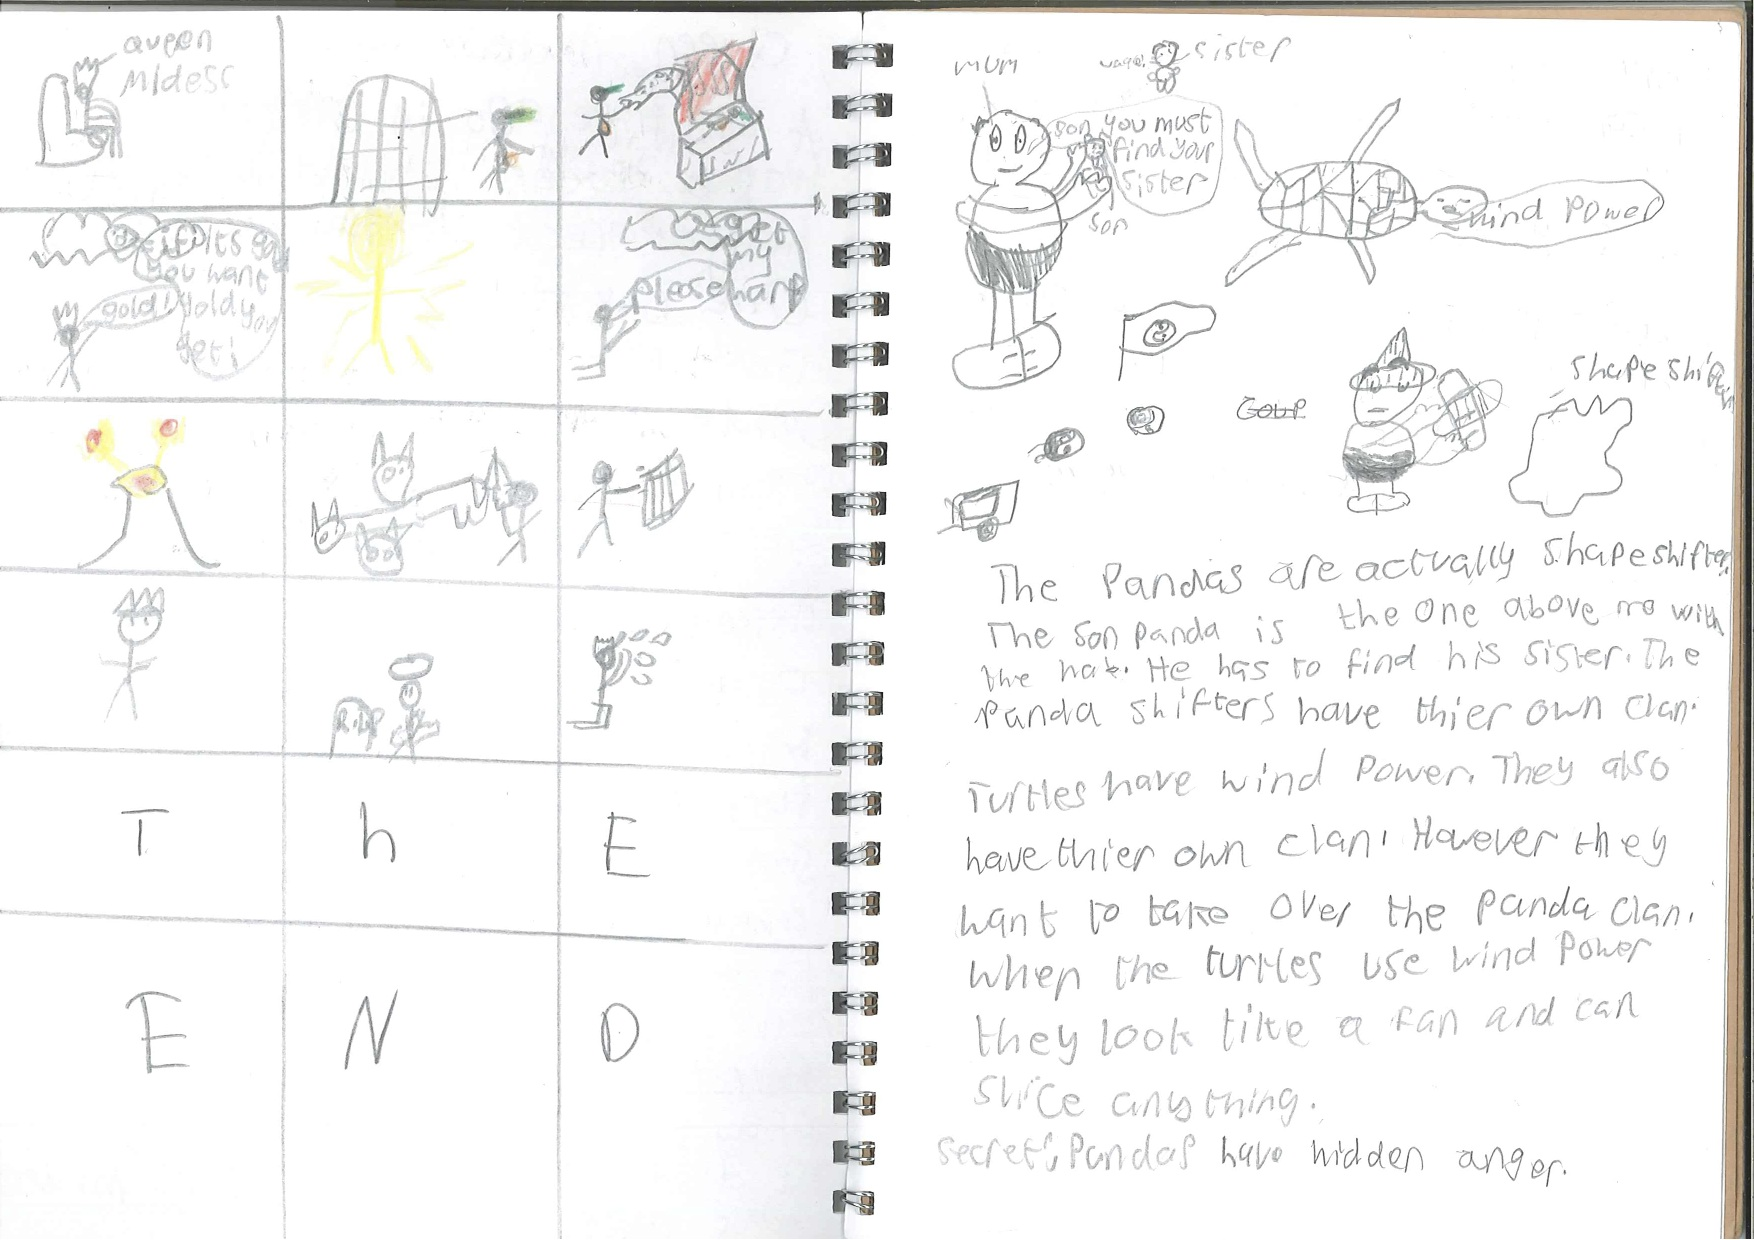 queen
Midess
gold!
if its gold
you want
gold you
get!
please
my
harp
R.I.P
T h E
E N D
mum
sister
son you must
find your
sister
son
wind power
shape shifters
The Pandas are actually shapeshifters.
The son panda is the one above me with
the hat. He has to find his sister. The
Panda shifters have thier own clan.
Turtles have wind power. They also
have thier own clan. However they
want to take over the panda clan.
When the turtles use wind power
they look like a fan and can
slice anything.
secret: Pandas have hidden anger.